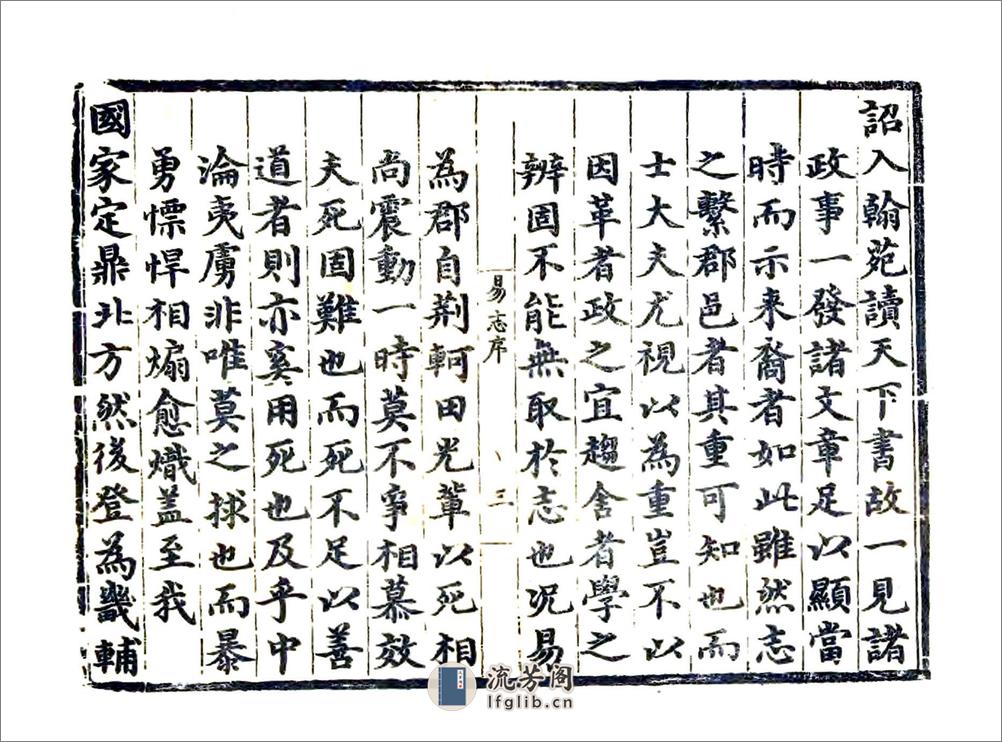 詔入翰苑讀天下書故一見諸
政事一發諸文章足以顯當
時而示来裔者如此雖然志
之繫郡邑者其重可知也而
士大夫尤視以為重豈不以
因革者政之宜趨舍者學之
辨固不能無取於志也况易
易志序
三
為郡自荆軻田光軰以死相
尚震動一時莫不爭相慕效
夫死固難也而死不足以善
道者則亦奚用死也及乎中
淪夷虜非唯莫之捄也而暴
勇慓悍相煽愈熾盖至我
國家定鼎北方然後登為畿輔
流芳阁
lfglib.cn